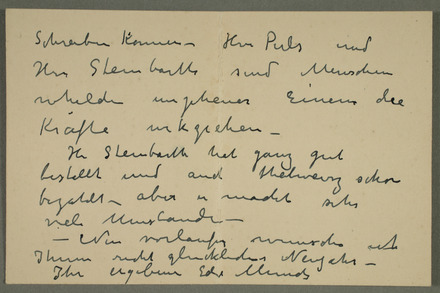 Schreiben können – Herr Puls und
Herr Steinbarth sind Menschen
welche ungeheuer einem die
Kräfte
Hr Steinbarth hat ganz gut
bestellt und auch schon
bezahlt – aber er macht sehr
viele Umstände –
– Nun vorläufig wünsche ich
Ihnen recht glückliches Neujahr –
Ihr ergebener Edv. Munch